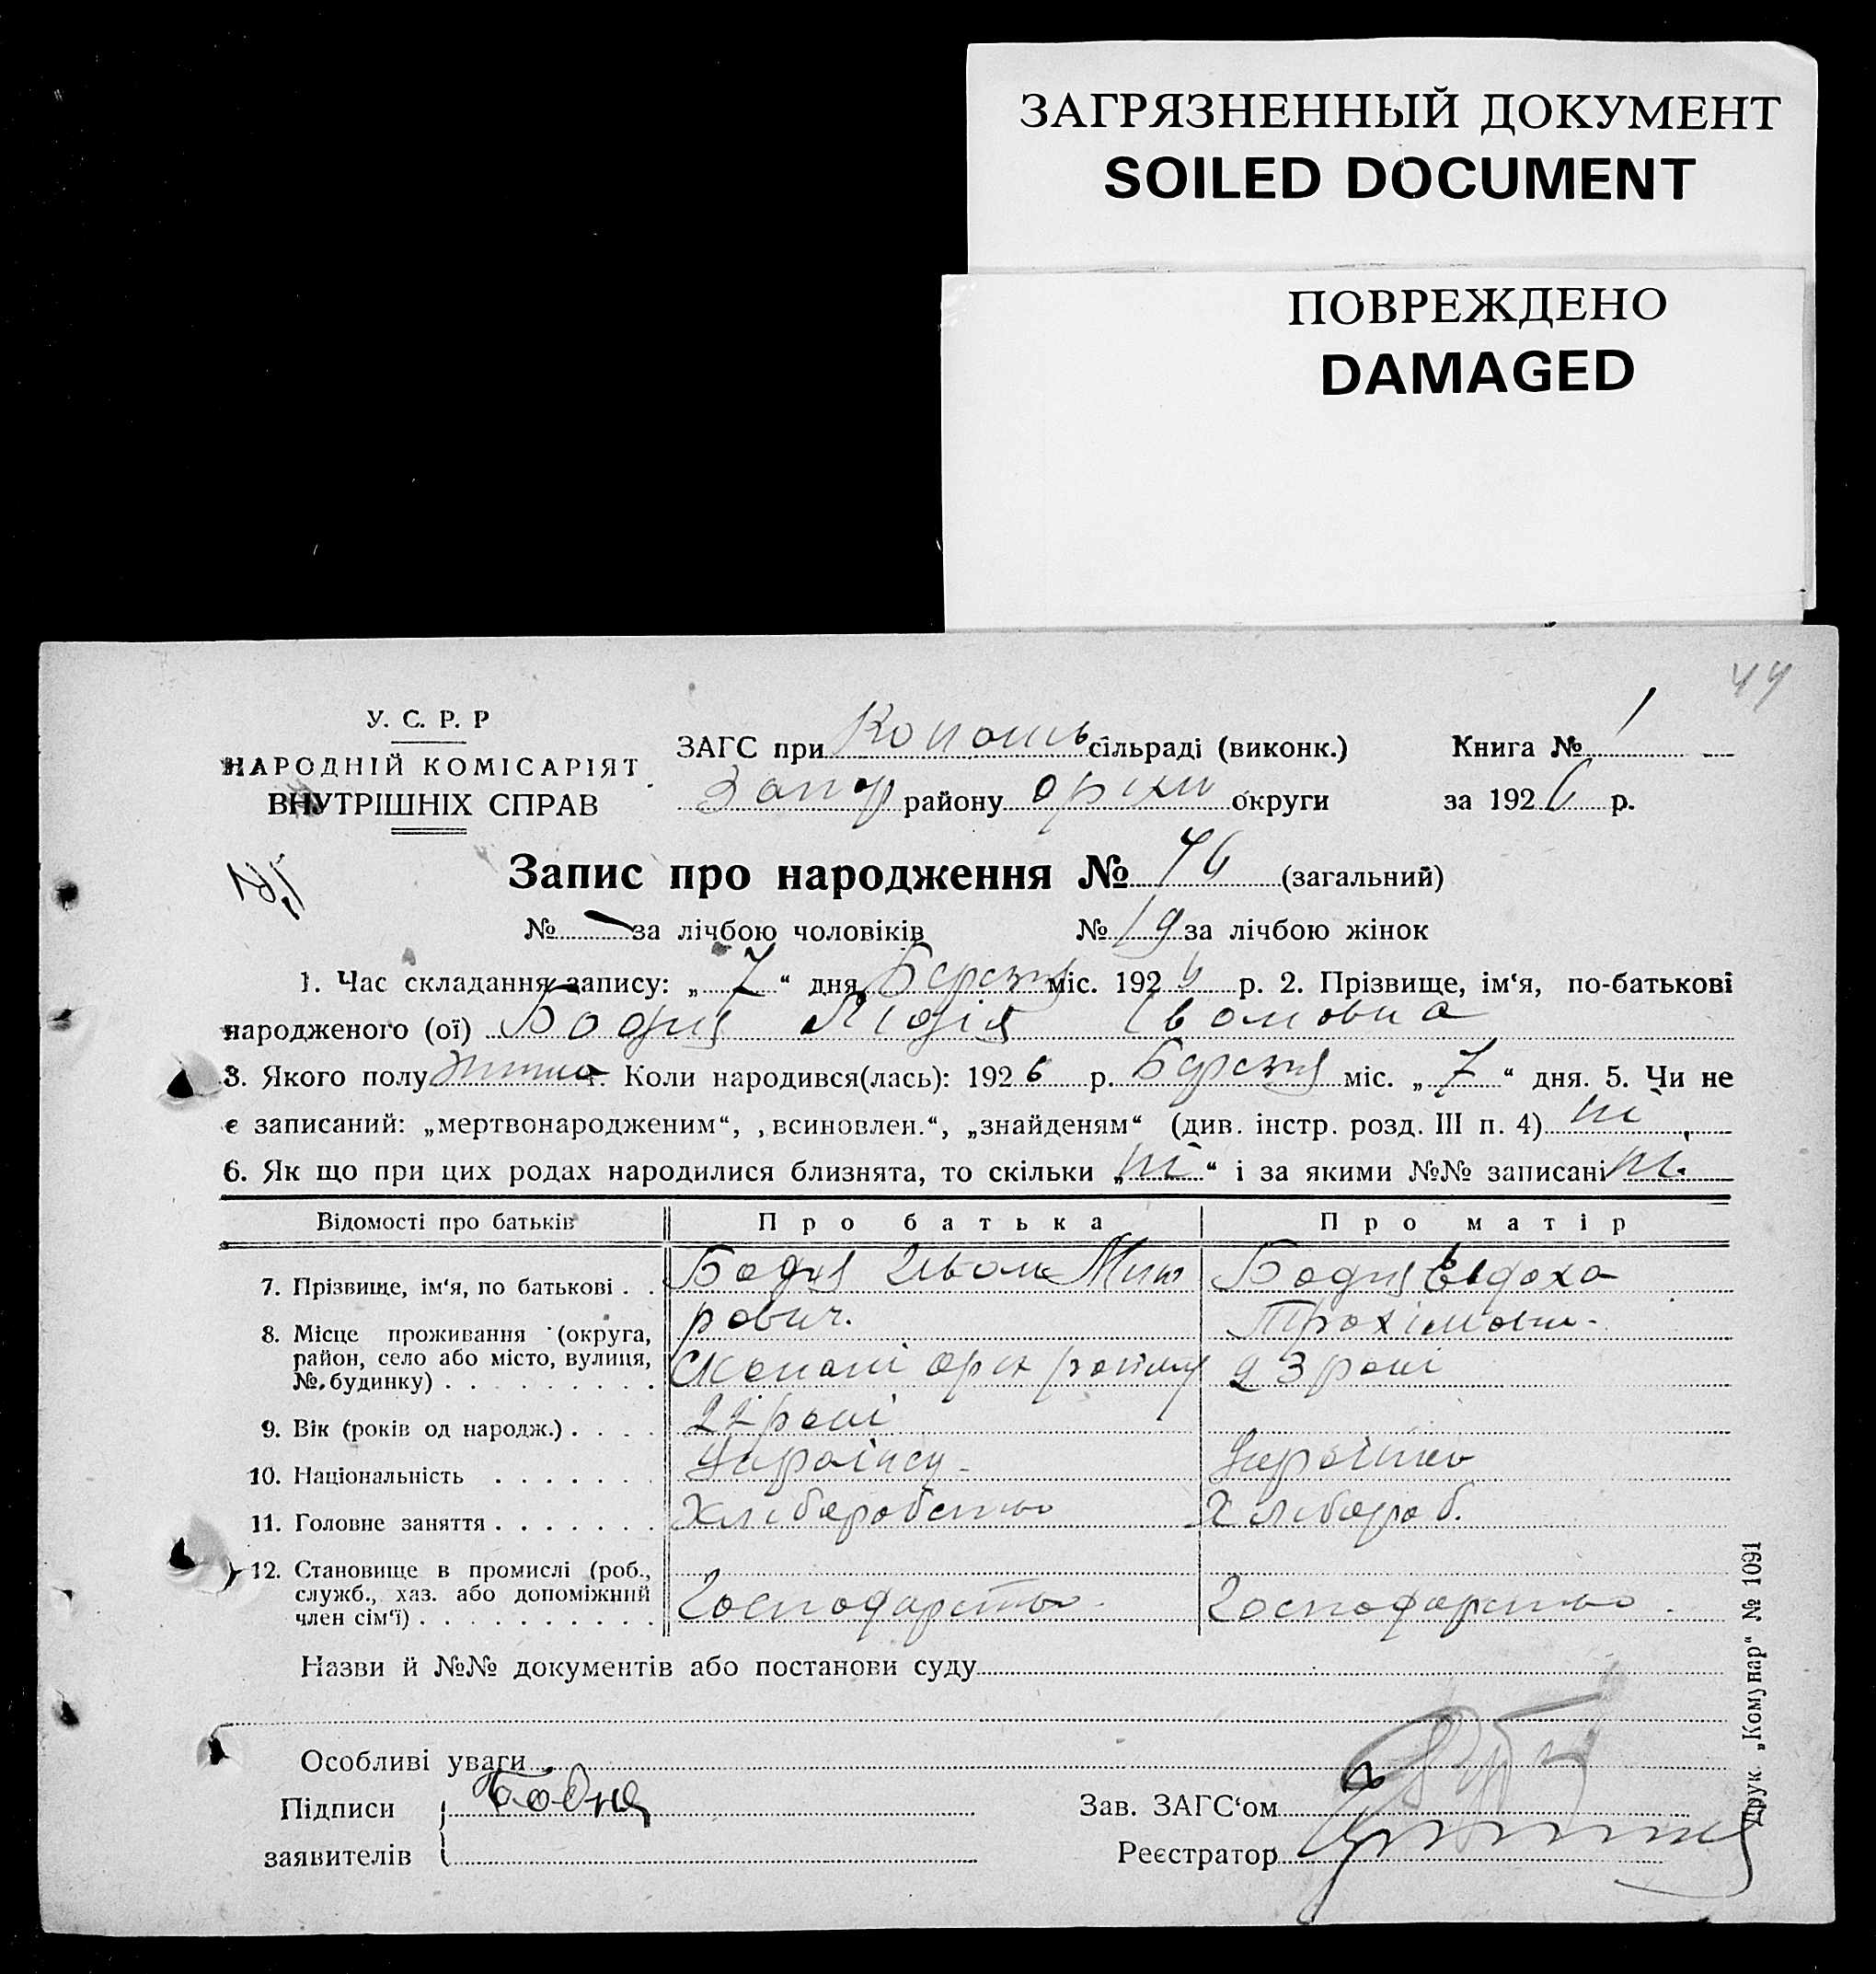 ЗАГРЯЗНЕННЫЙ ДОКУМЕНТ
SOILED DOCUMENT
ПОВРЕЖДЕНО
DAMAGED
44
У. С. Р. Р
НАРОДНІЙ КОМІСАРІЯТ
ВНУТРІШНІХ СПРАВ
ЗАГС при Копань сільраді (виконк.) Книга № 1
Запор району оріхи округи за 1926 р.
Запис про народження № 46 (загальний)
№ - за лічбою чоловіків № 19 за лічбою жінок
1. Час складання запису: „ 7 “ дня Березня міс. 1926 р. 2. Прізвище, ім‘я, по-батькові
народженого (ої) Бодня Лідія Івановна
3. Якого полу жіноч. Коли народився(лась): 1926 р. Березня міс. „ 7 “ дня. 5. Чи не
є записаний: „мертвонародженим“, „всиновлен.“, „знайденям“ (див. інстр. розд. III п. 4) ні
6. Як що при цих родах народилися близнята, то скільки „ ні “ і за якими №№ записані ні.
Відомості про батьків Про батька Про матір
7. Прізвище, ім‘я, по батькові . . Бодня Иван Миро Бодня Евдоха
рович. Трохімовн-
8. Місце проживання (округа,
район, село або місто, вулиця,
№ будинку) . . . . . . . . . Скопані орих району 23 роки
9. Вік (років од народж.) . . . . 22 роки
10. Національність . . . . . . . Українец Українка
11. Головне заняття . . . . . . . Хліборобство Хлібороб.
12. Становище в промислі (роб.,
служб., хаз. або допоміжний
член сім‘ї) . . . . . . . . . . Господарство. Господарство.
Назви й №№ документів або постанови суду
Особливі уваги
Підписи Бодня Зав. ЗАГС‘ом
заявителів Реєстратор
Друк. „Комунар“ № 1091